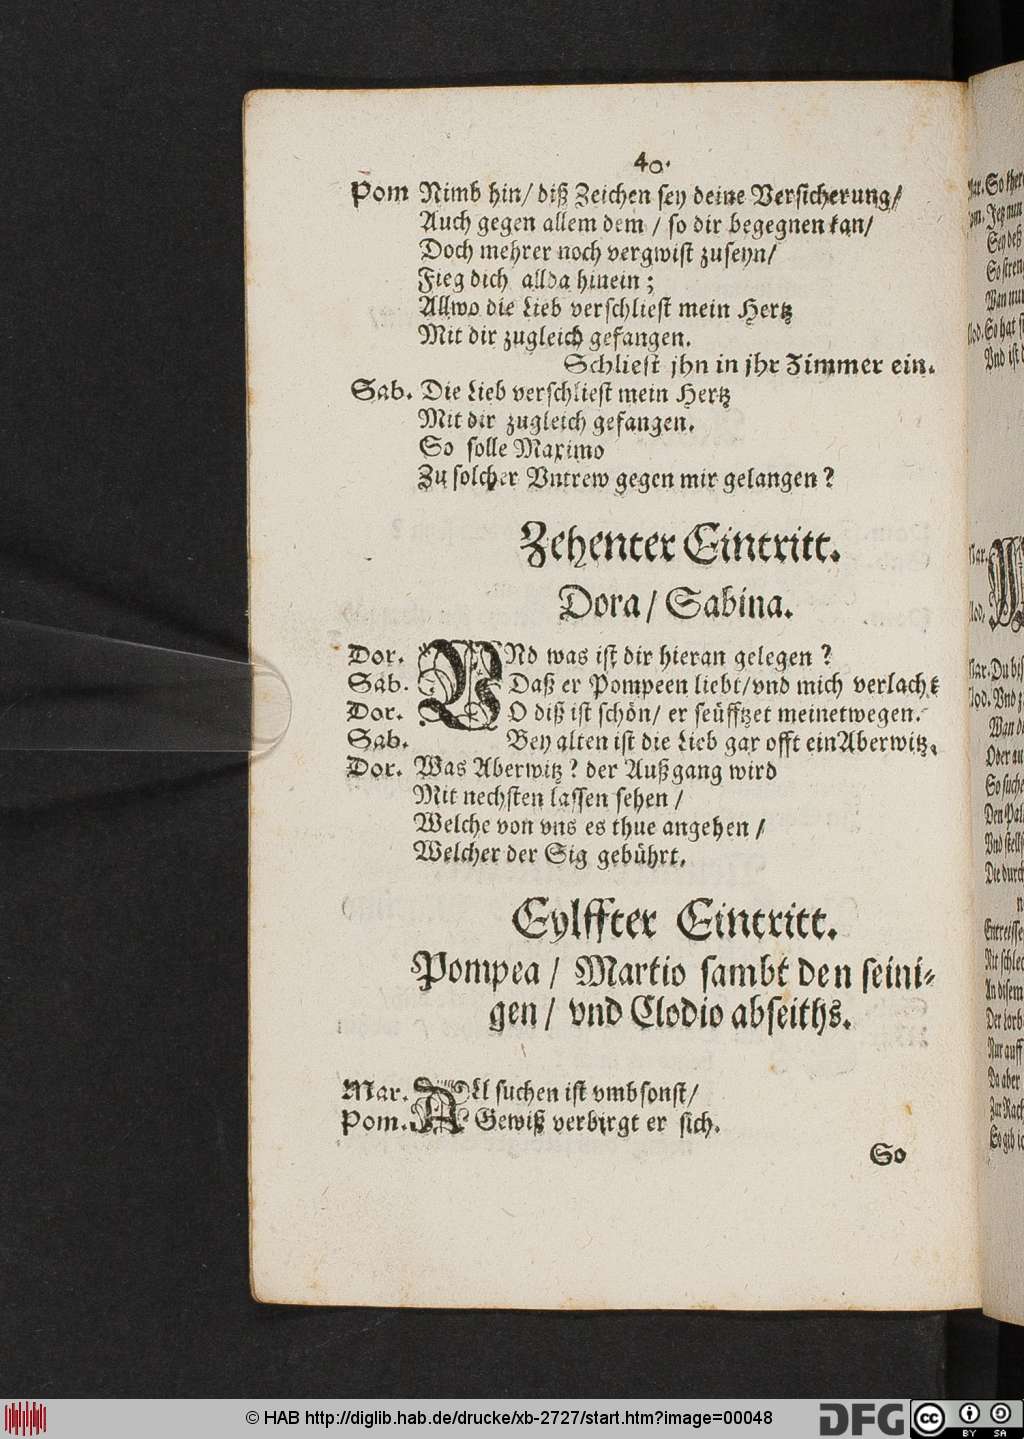 40.
Pom Nimb hin/ diß Zeichen sey deine Versicherung/
Auch gegen allem dem / so dir begegnen kan/
Doch mehrer noch vergwist zuseyn/
Fieg dich allda hinein;
Allwo die Lieb verschliest mein Hertz
Mit dir zugleich gefangen.
Schliest jhn in jhr Zimmer ein.
Sab. Die Lieb verschliest mein Hertz
Mit dir zugleich gefangen.
So solle Maximo
Zu solcher Vntrew gegen mir gelangen?
Zehenter Eintritt.
Dora/ Sabina.
Dor. VNd was ist dir hieran gelegen?
Sab. Daß er Pompeen liebt/vnd mich verlacht
Dor. O diß ist schön/ er seüfftzet meinetwegen.
Sab. Bey alten ist die Lieb gar offt ein Aberwitz.
Dor. Was Aberwitz? der Außgang wird
Mit nechsten lassen sehen /
Welche von vns es thue angehen /
Welcher der Sig gebührt.
Eylffter Eintritt.
Pompea/ Martio sambt den seini-
gen/ vnd Clodio abseiths.
Mar. All suchen ist vmbsonst/
Pom. Gewiß verbirgt er sich.
So
© HAB http://diglib.hab.de/drucke/xb-2727/start.htm?image=00048
DFG
cc BY SA